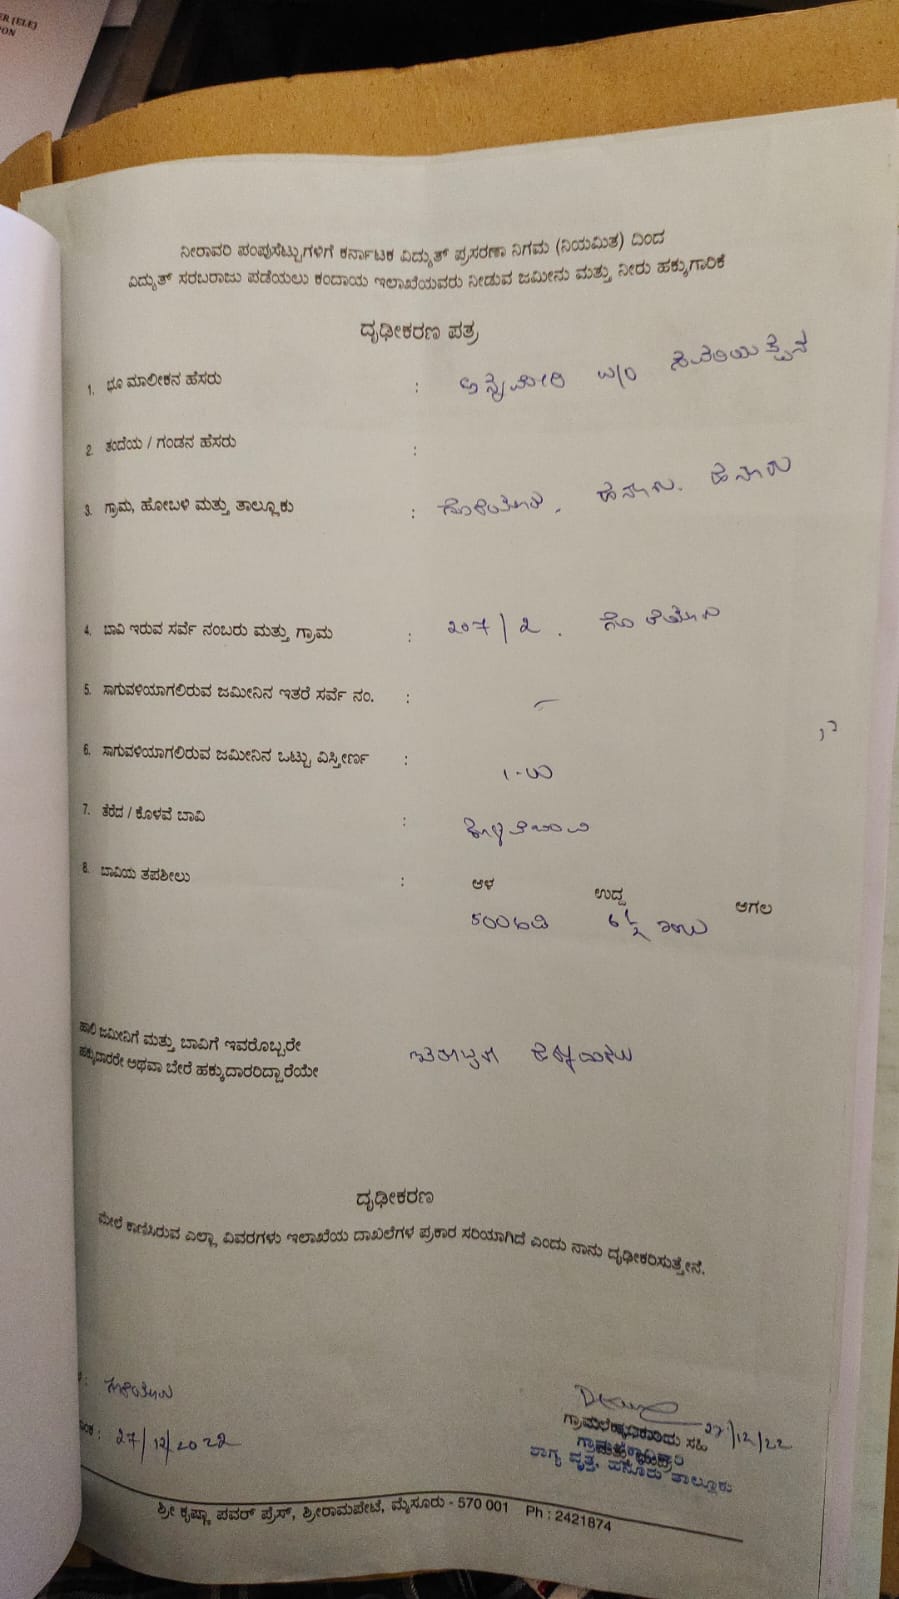 ER (ELE)
ನೀರಾವರಿ ಪಂಪುಸೆಟ್ಟುಗಳಿಗೆ ಕರ್ನಾಟಕ ವಿದ್ಯುತ್ ಪ್ರಸರಣಾ ನಿಗಮ (ನಿಯಮಿತ) ದಿಂದ
ವಿದ್ಯುತ್ ಸರಬರಾಜು ಪಡೆಯಲು ಕಂದಾಯ ಇಲಾಖೆಯವರು ನೀಡುವ ಜಮೀನು ಮತ್ತು ನೀರು ಹಕ್ಕುಗಾರಿಕೆ
ದೃಢೀಕರಣ ಪತ್ರ
1. ಭೂ ಮಾಲೀಕನ ಹೆಸರು :
2. ತಂದೆಯ / ಗಂಡನ ಹೆಸರು :
3. ಗ್ರಾಮ, ಹೋಬಳಿ ಮತ್ತು ತಾಲ್ಲೂಕು :
4. ಬಾವಿ ಇರುವ ಸರ್ವೆ ನಂಬರು ಮತ್ತು ಗ್ರಾಮ : 207/2.
5. ಸಾಗುವಳಿಯಾಗಲಿರುವ ಜಮೀನಿನ ಇತರೆ ಸರ್ವೆ ನಂ. : –
6. ಸಾಗುವಳಿಯಾಗಲಿರುವ ಜಮೀನಿನ ಒಟ್ಟು ವಿಸ್ತೀರ್ಣ :
7. ತೆರೆದ / ಕೊಳವೆ ಬಾವಿ : ಕೊಳವೆಬಾವಿ
8. ಬಾವಿಯ ತಪಶೀಲು : ಆಳ ಉದ್ದ ಅಗಲ
500ಅಡಿ 6½ ಇಂಚು
ಹಾಲಿ ಜಮೀನಿಗೆ ಮತ್ತು ಬಾವಿಗೆ ಇವರೊಬ್ಬರೇ
ಹಕ್ಕುದಾರರೇ ಅಥವಾ ಬೇರೆ ಹಕ್ಕುದಾರರಿದ್ದಾರೆಯೇ
ದೃಢೀಕರಣ
ಮೇಲೆ ಕಾಣಿಸಿರುವ ಎಲ್ಲಾ ವಿವರಗಳು ಇಲಾಖೆಯ ದಾಖಲೆಗಳ ಪ್ರಕಾರ ಸರಿಯಾಗಿದೆ ಎಂದು ನಾನು ದೃಢೀಕರಿಸುತ್ತೇನೆ.
27/12/2022
27/12/22
ಗ್ರಾಮಲೆಕ್ಕಾಧಿಕಾರಿಯ ಸಹಿ
ವೃತ್ತ, ಹನೂರು ತಾಲ್ಲೂಕು
ಶ್ರೀ ಕೃಷ್ಣಾ ಪವರ್ ಪ್ರೆಸ್, ಶ್ರೀರಾಮಪೇಟೆ, ಮೈಸೂರು - 570 001 Ph : 2421874